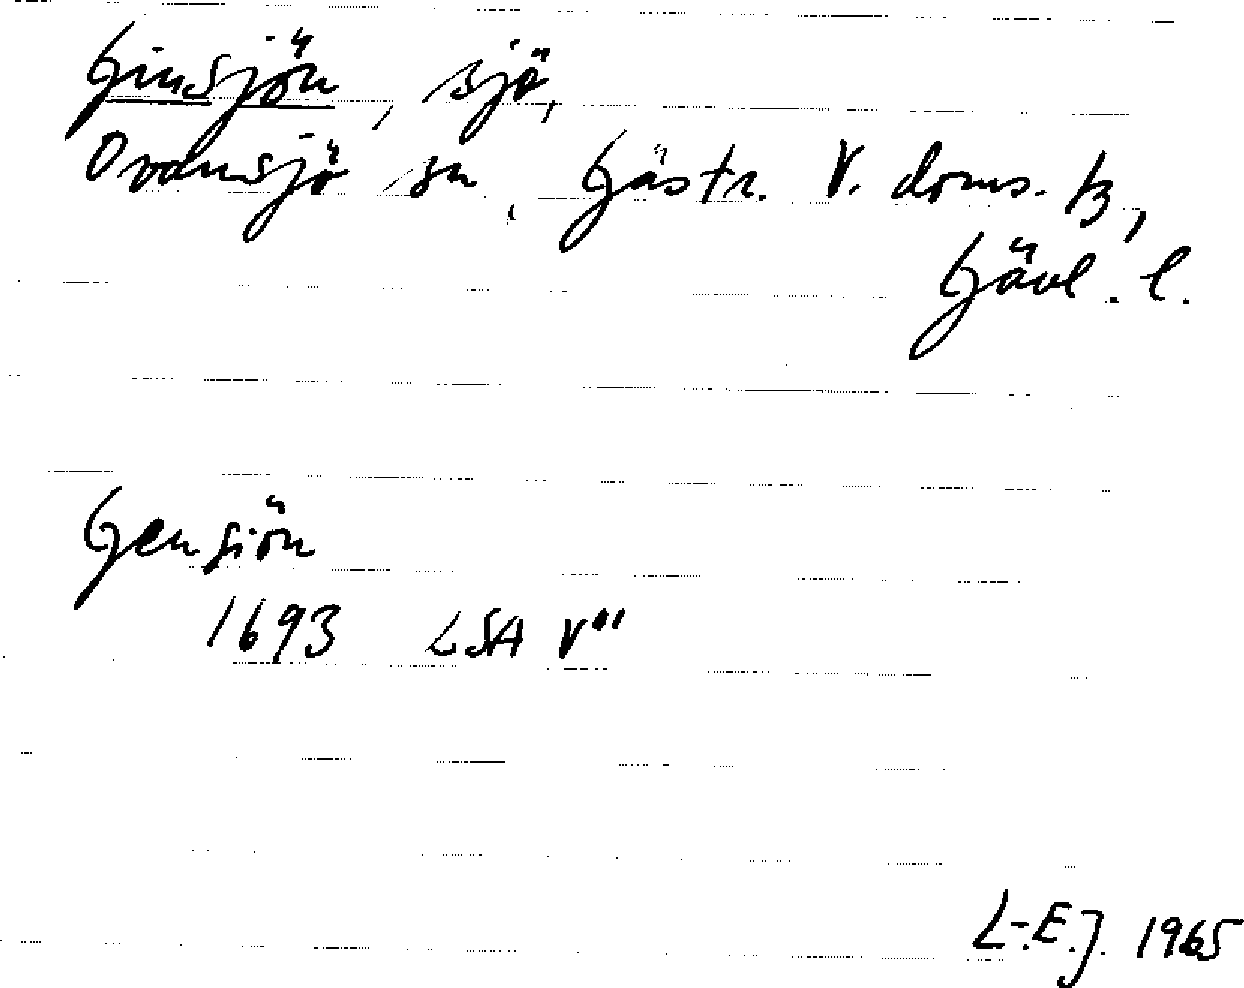 Ginsjön, sjö,
Ovansjö sn, Gästr. V. doms. tz,
Gävl. l.
Gensiön
1693 LSA V"
L-E.J. 1965